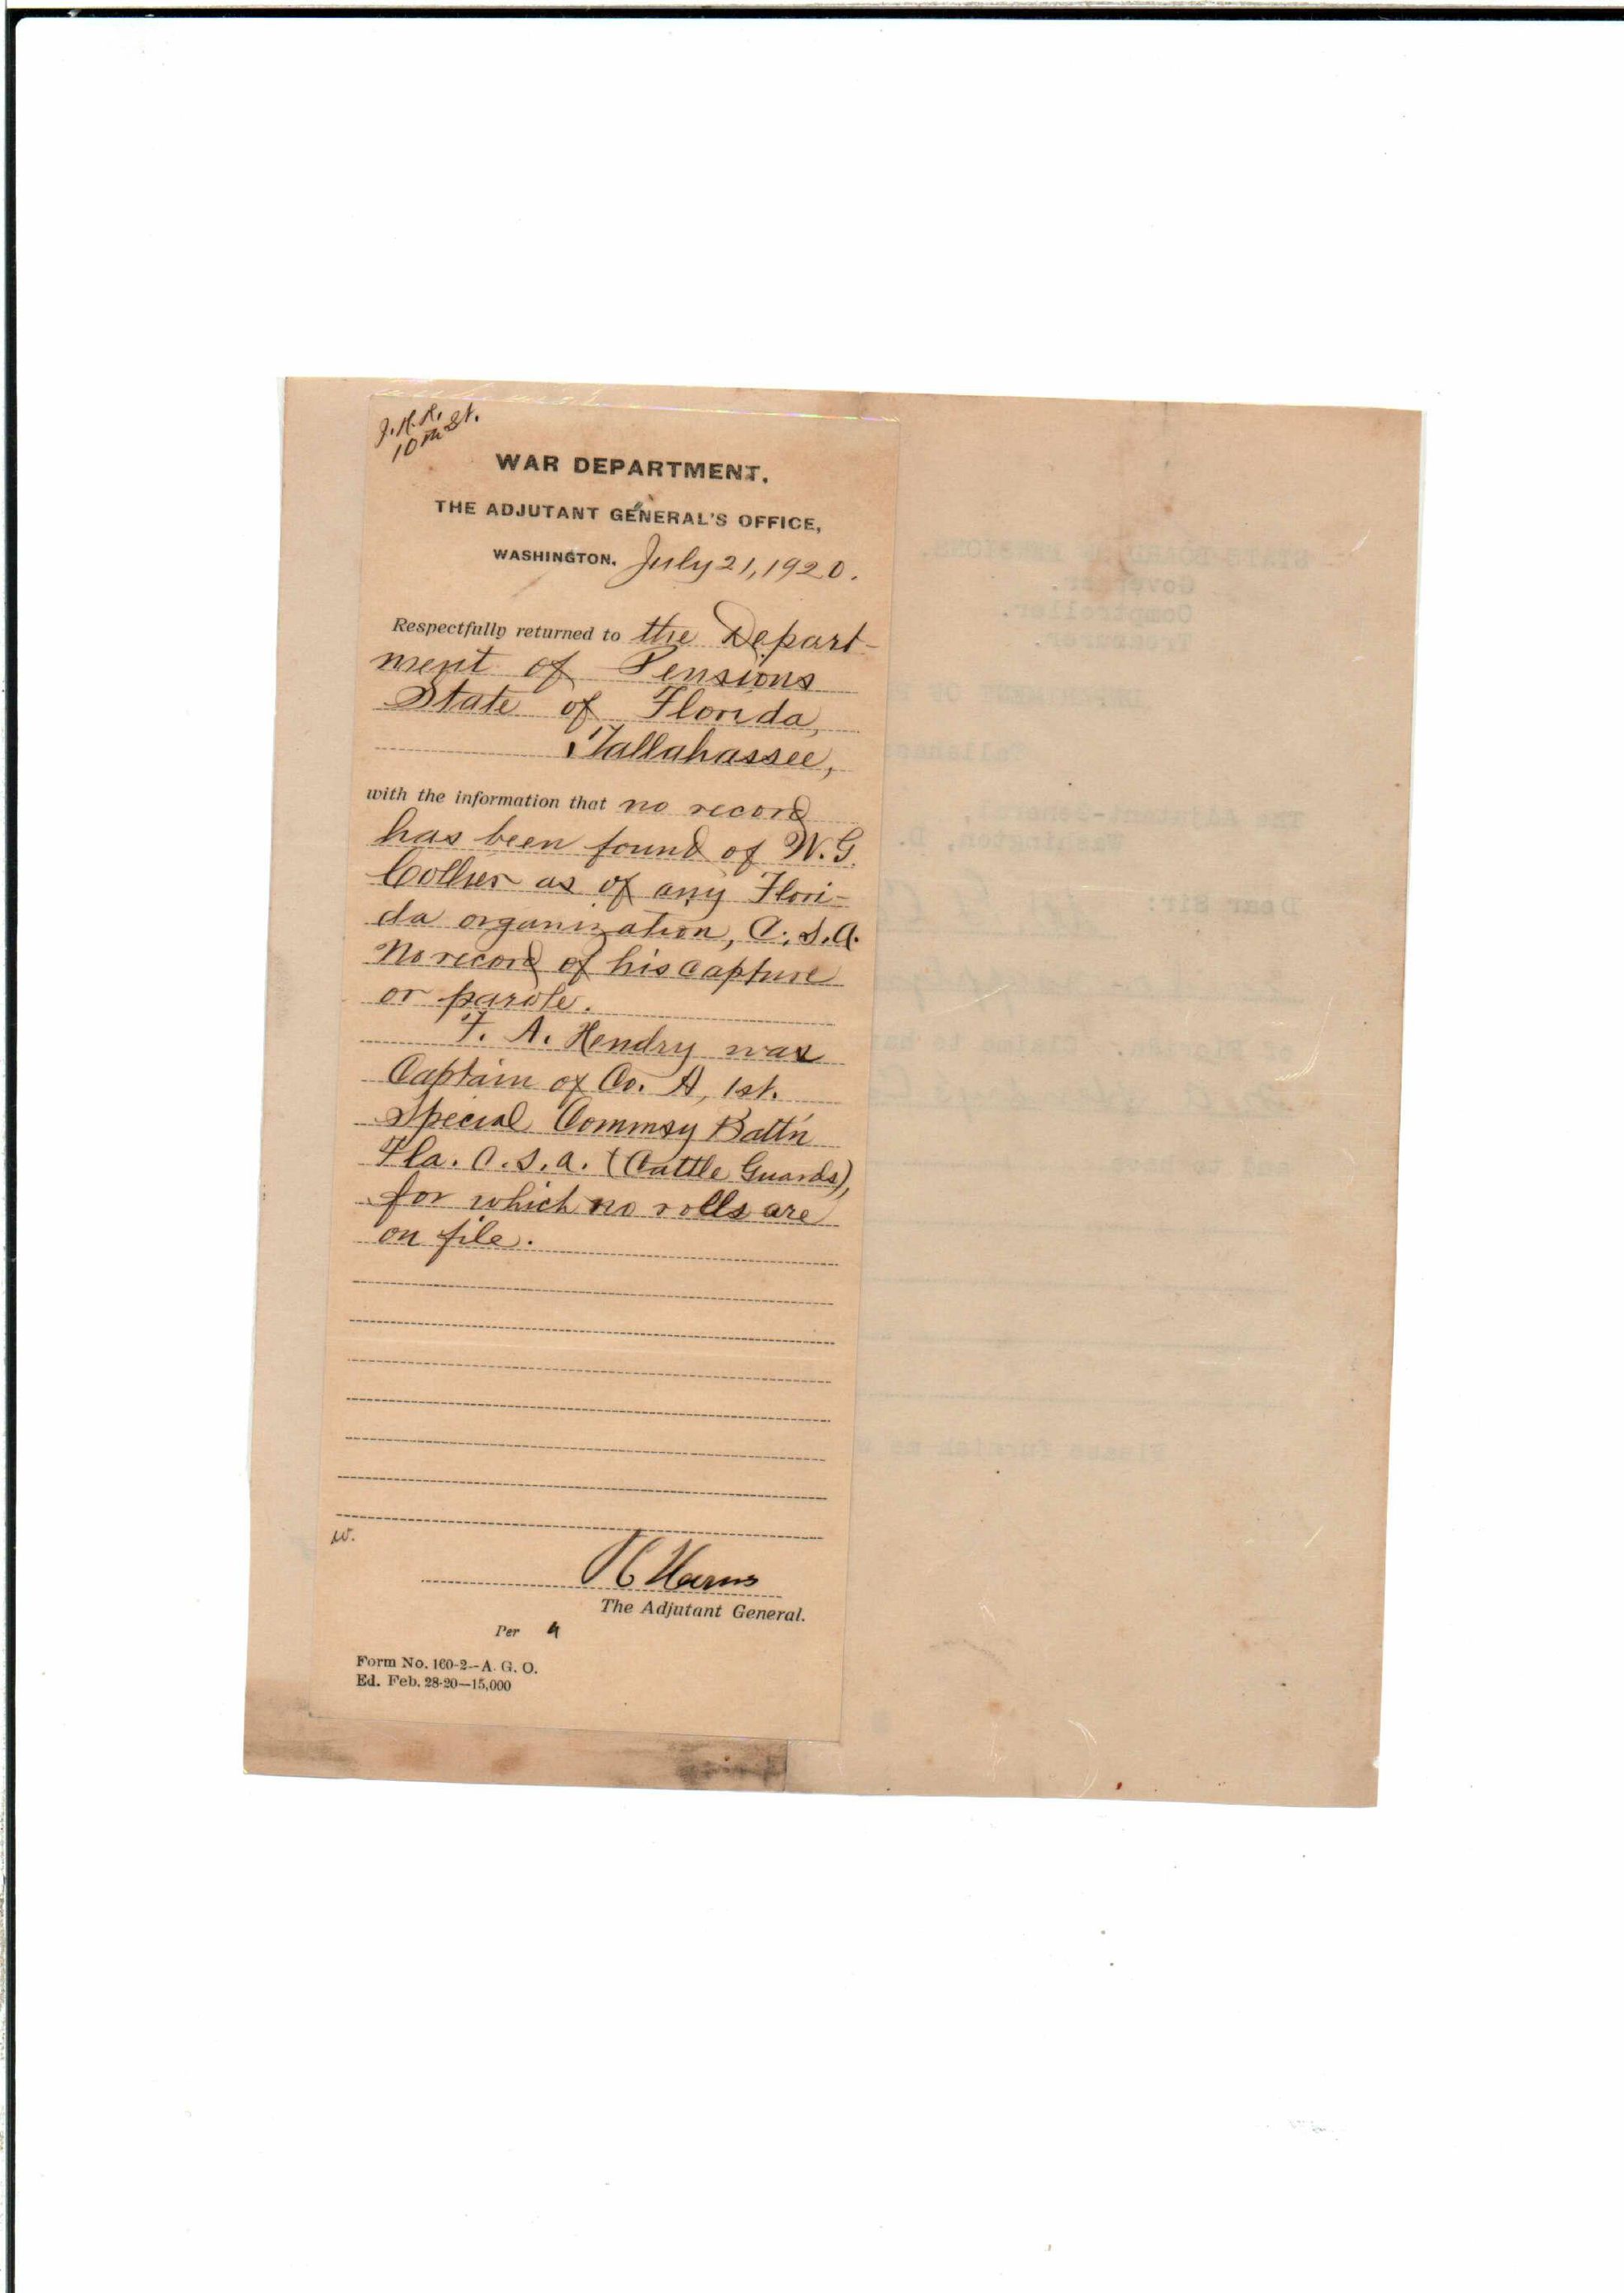 J.H.R.
10th St.
WAR DEPARTMENT,
THE ADJUTANT GENERAL'S OFFICE,
WASHINGTON, July 21, 1920.
Respectfully returned to the Depart-
ment of Pensions
State of Florida,
Tallahassee,
with the information that no record
has been found of W.G.
Collier as of any Flori-
da organization, C.S.A.
No record of his capture
or parole.
F. A. Hendry was
Captain of Co. A, 1st.
Special Commsy Batt'n
Fla. C.S.A. (Cattle Guards),
for which no rolls are
on file.
w.
P C Harris
The Adjutant General.
Per
Form No. 160-2--A. G. O.
Ed. Feb. 28-20--15,000
STATE BOARD OF PENSIONS
Governor.
Comptroller.
Treasurer.
DEPARTMENT OF
The Adjutant-General,
Washington, D.
Dear Sir:
Claims to
Please furnish me